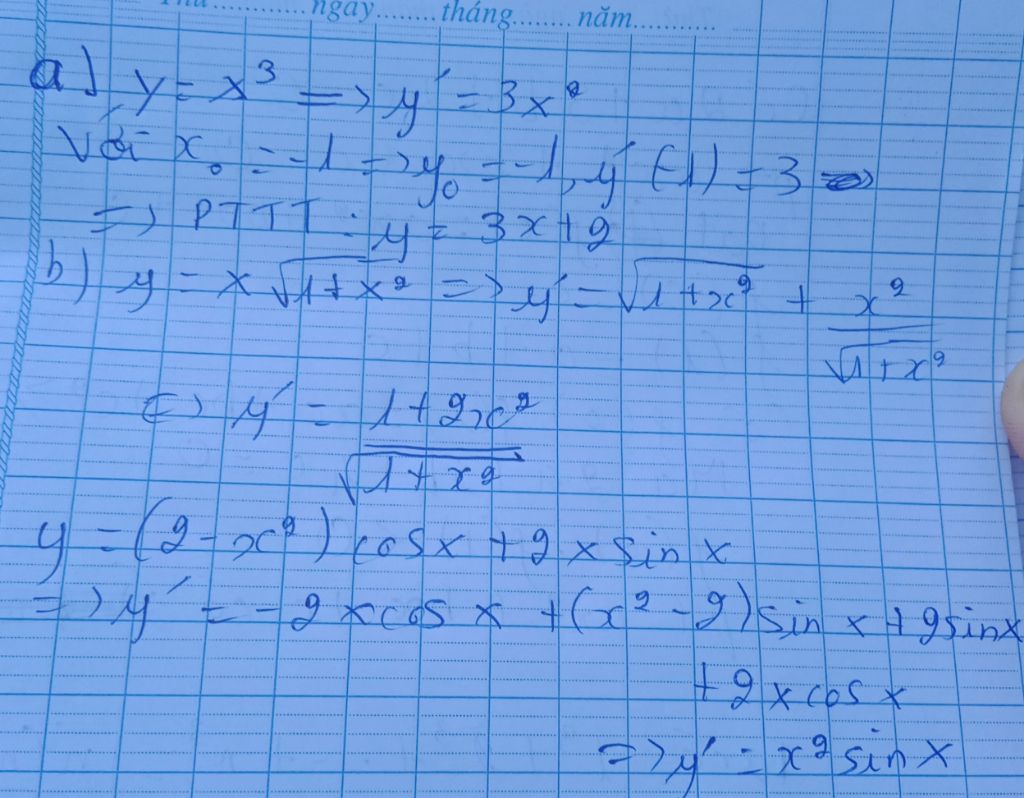 Thứ...............ngày........tháng........năm............
a) y = x³ => y' = 3x²
Với x₀ = -1 => y₀ = -1, y'(-1) = 3
=> PTTT : y = 3x + 2
b) y = x√(1+x²) => y' = √(1+x²) + x²/√(1+x²)
<=> y' = (1+2x²)/√(1+x²)
y = (2-x²) cosx + 2x sin x
=> y' = -2x cos x + (x² - 2) sin x + 2 sin x
+ 2x cos x
=> y' = x² sin x